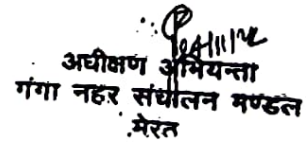 अधीक्षण अभियन्ता
गंगा नहर संचालन मण्डल
मेरठ